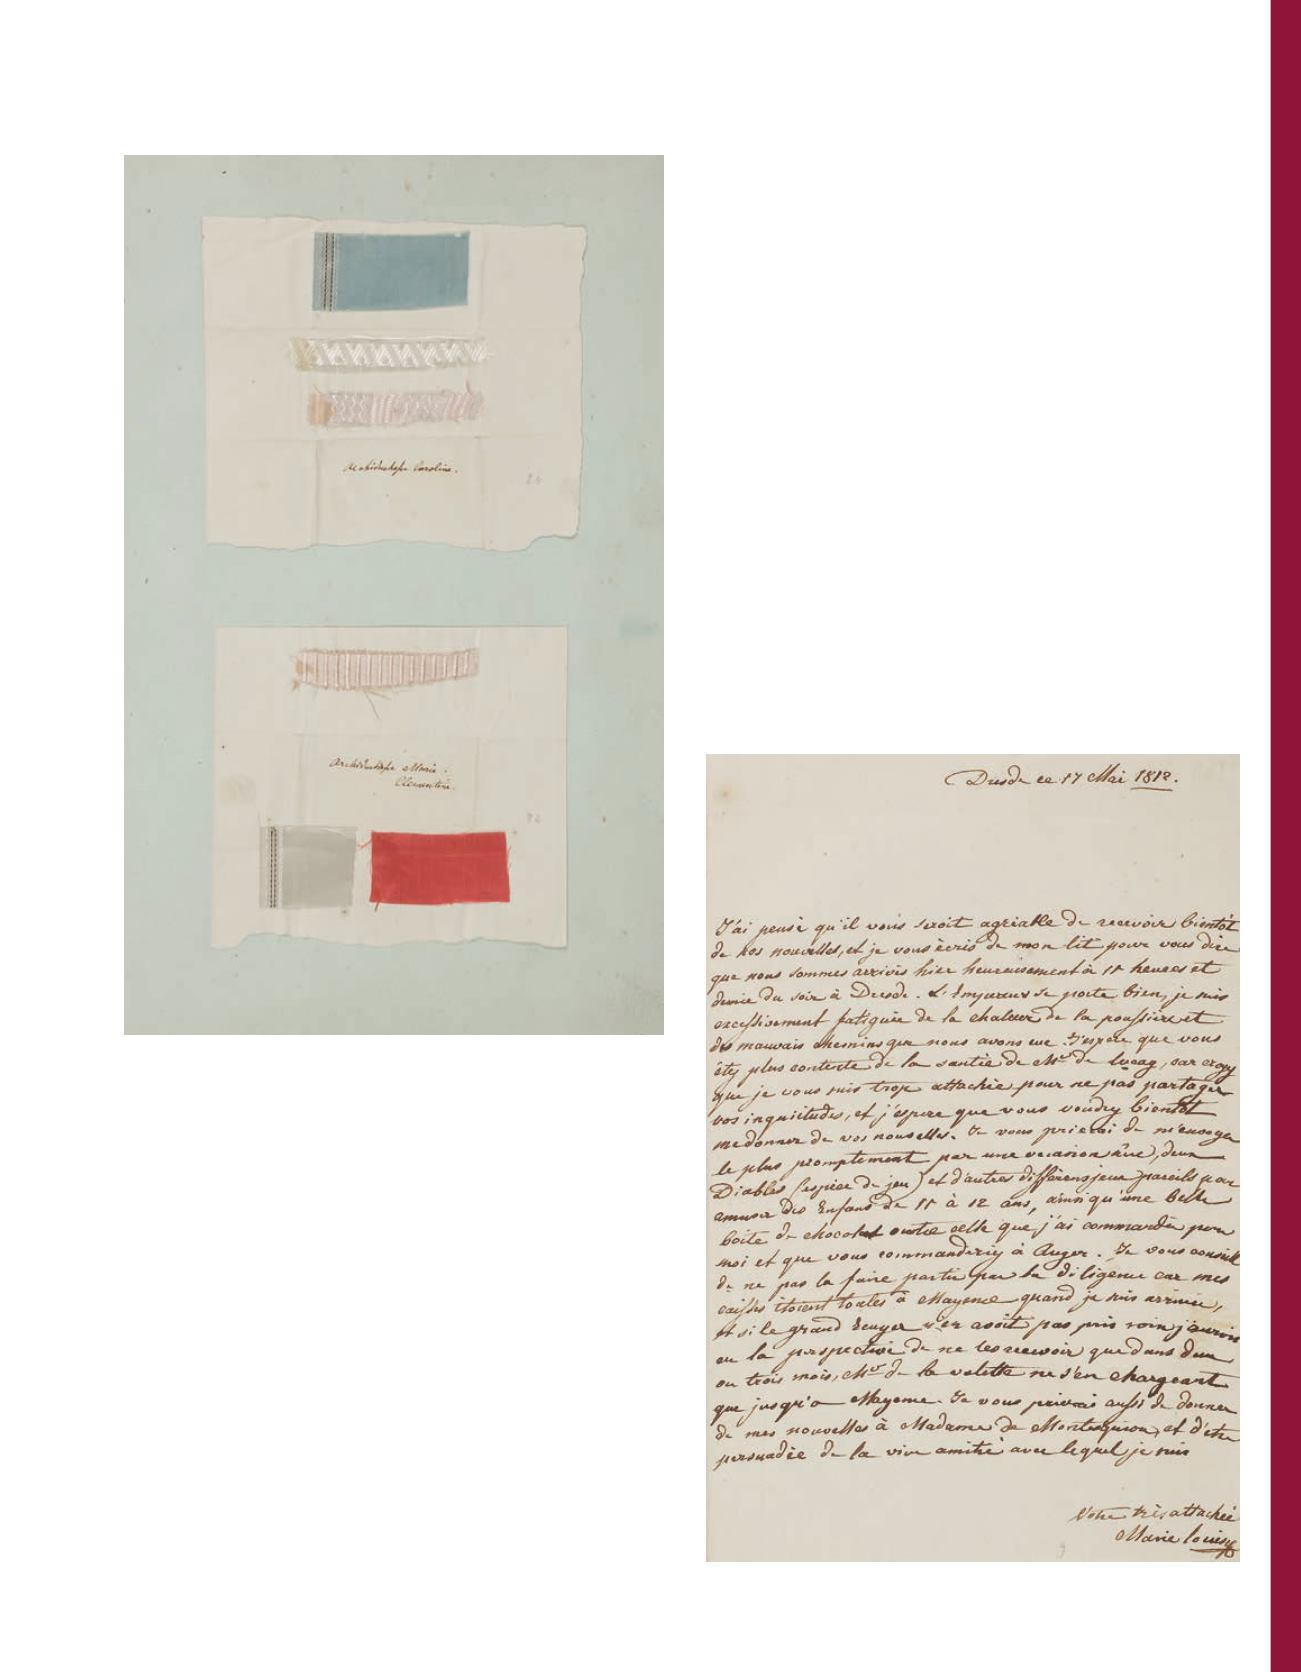 Archiduchesse Caroline.
Archiduchesse Marie
Clementine.
Dresde ce 17 Mai 1812.
J'ai pensé qu'il vous seroit agréable de recevoir bientôt
de nos nouvelles, et je vous écris de mon lit pour vous dire
que nous sommes arrivés hier heureusement à 11 heures et
demie du soir à Dresde. L'Empereur se porte bien, je suis
excessivement fatiguée de la chaleur de la poussière et
des mauvais chemins que nous avons eue. J'espère que vous
êtes plus contente de la santée de Mr de Luçay, car croyez
que je vous suis trop attachée pour ne pas partager
vos inquiétudes, et j'espère que vous voudrez bientôt
me donner de vos nouvelles. Je vous prierai de m'envoyer
le plus promptement par une occasion sûre, deux
Diables (espèce de jeu) et d'autres différens jeux pareils pour
amuser des Enfans de 11 à 12 ans, ainsi qu'une belle
boite de chocolat outre celle que j'ai commandée pour
moi et que vous commanderez à Auger. Je vous conseille
de ne pas la faire partir par la diligence car mes
caisses étoient toutes à Mayence quand je suis arrivée,
et si le grand Ecuyer n'en avoit pas pris soin j'aurois
eu la perspective de ne les recevoir que dans deux
ou trois mois, Mr de la valette ne s'en chargeant
que jusqu'à Mayence. Je vous prierais aussi de donner
de mes nouvelles à Madame de Montesquiou, et d'être
persuadée de la vive amitié avec lequel je suis
Votre très attachée
Marie Louise